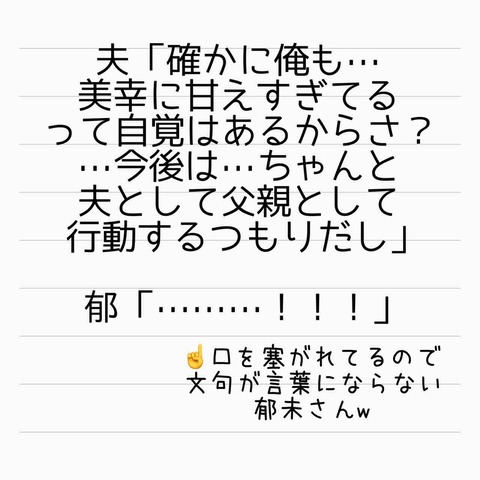 夫「確かに俺も…
美幸に甘えすぎてる
って自覚はあるからさ？
…今後は…ちゃんと
夫として父親として
行動するつもりだし」
郁「………！！！」
☝️口を塞がれてるので
文句が言葉にならない
郁未さんw